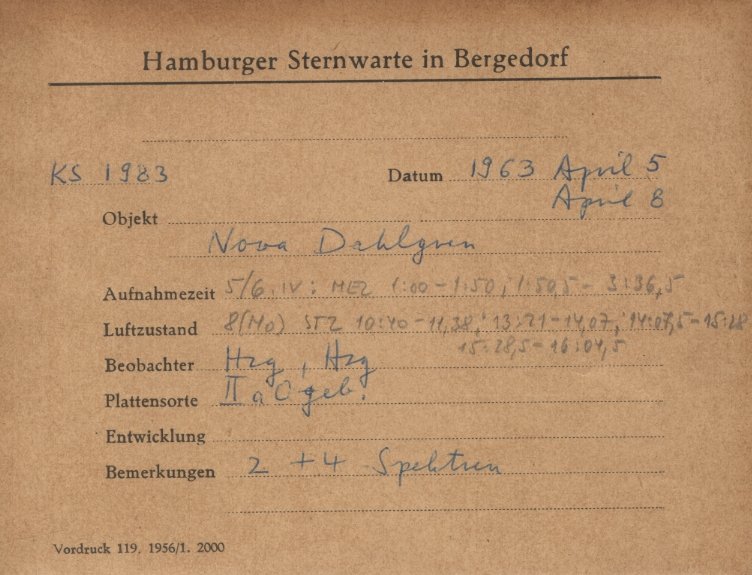 Hamburger Sternwarte in Bergedorf
KS 1983 Datum 1963 April 5
April 8
Objekt
Nova Dahlgren
Aufnahmezeit 5/6. IV: MEZ 1:00 - 1:50; 1:50,5 - 3:36,5
Luftzustand 8(Mo) STZ 10:40 - 11,38; 13:21 - 14,07; 14:07,5 - 15:28
15:28,5 - 16:04,5
Beobachter Hzg, Hzg
Plattensorte II a O geb.
Entwicklung
Bemerkungen 2 + 4 Spektren
Vordruck 119. 1956/1. 2000